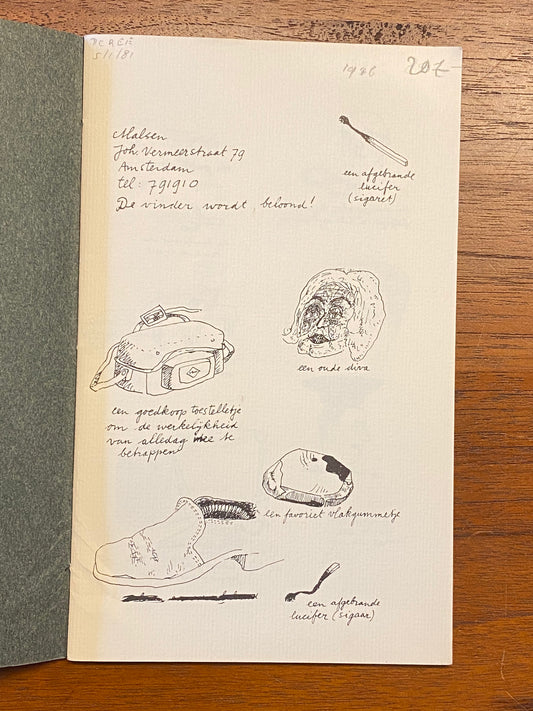 5/1/81
1986
207-
Malsen
Joh. Vermeerstraat 79
Amsterdam
tel: 791910
De vinder wordt, beloond!
een afgebrande
lucifer
(sigaret)
een oude diva
een goedkoop toestelletje
om de werkelijkheid
van alledag mee te
betrappen
een favoriet vlakgummetje
een afgebrande
lucifer (sigaar)